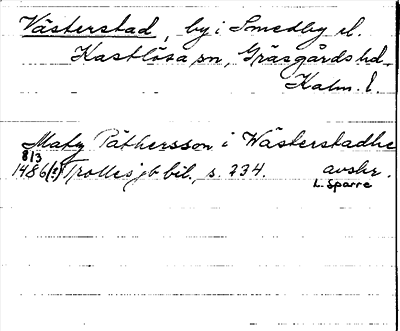 Västerstad, by i Smedby el.
Kastlösa sn, Gräsgårds hd.
Kalm. l.
Maty Pæthersson i Wästerstadhe
8/3
1486(?) Trolles jb bil., s. 234. avskr.
L. Sparre